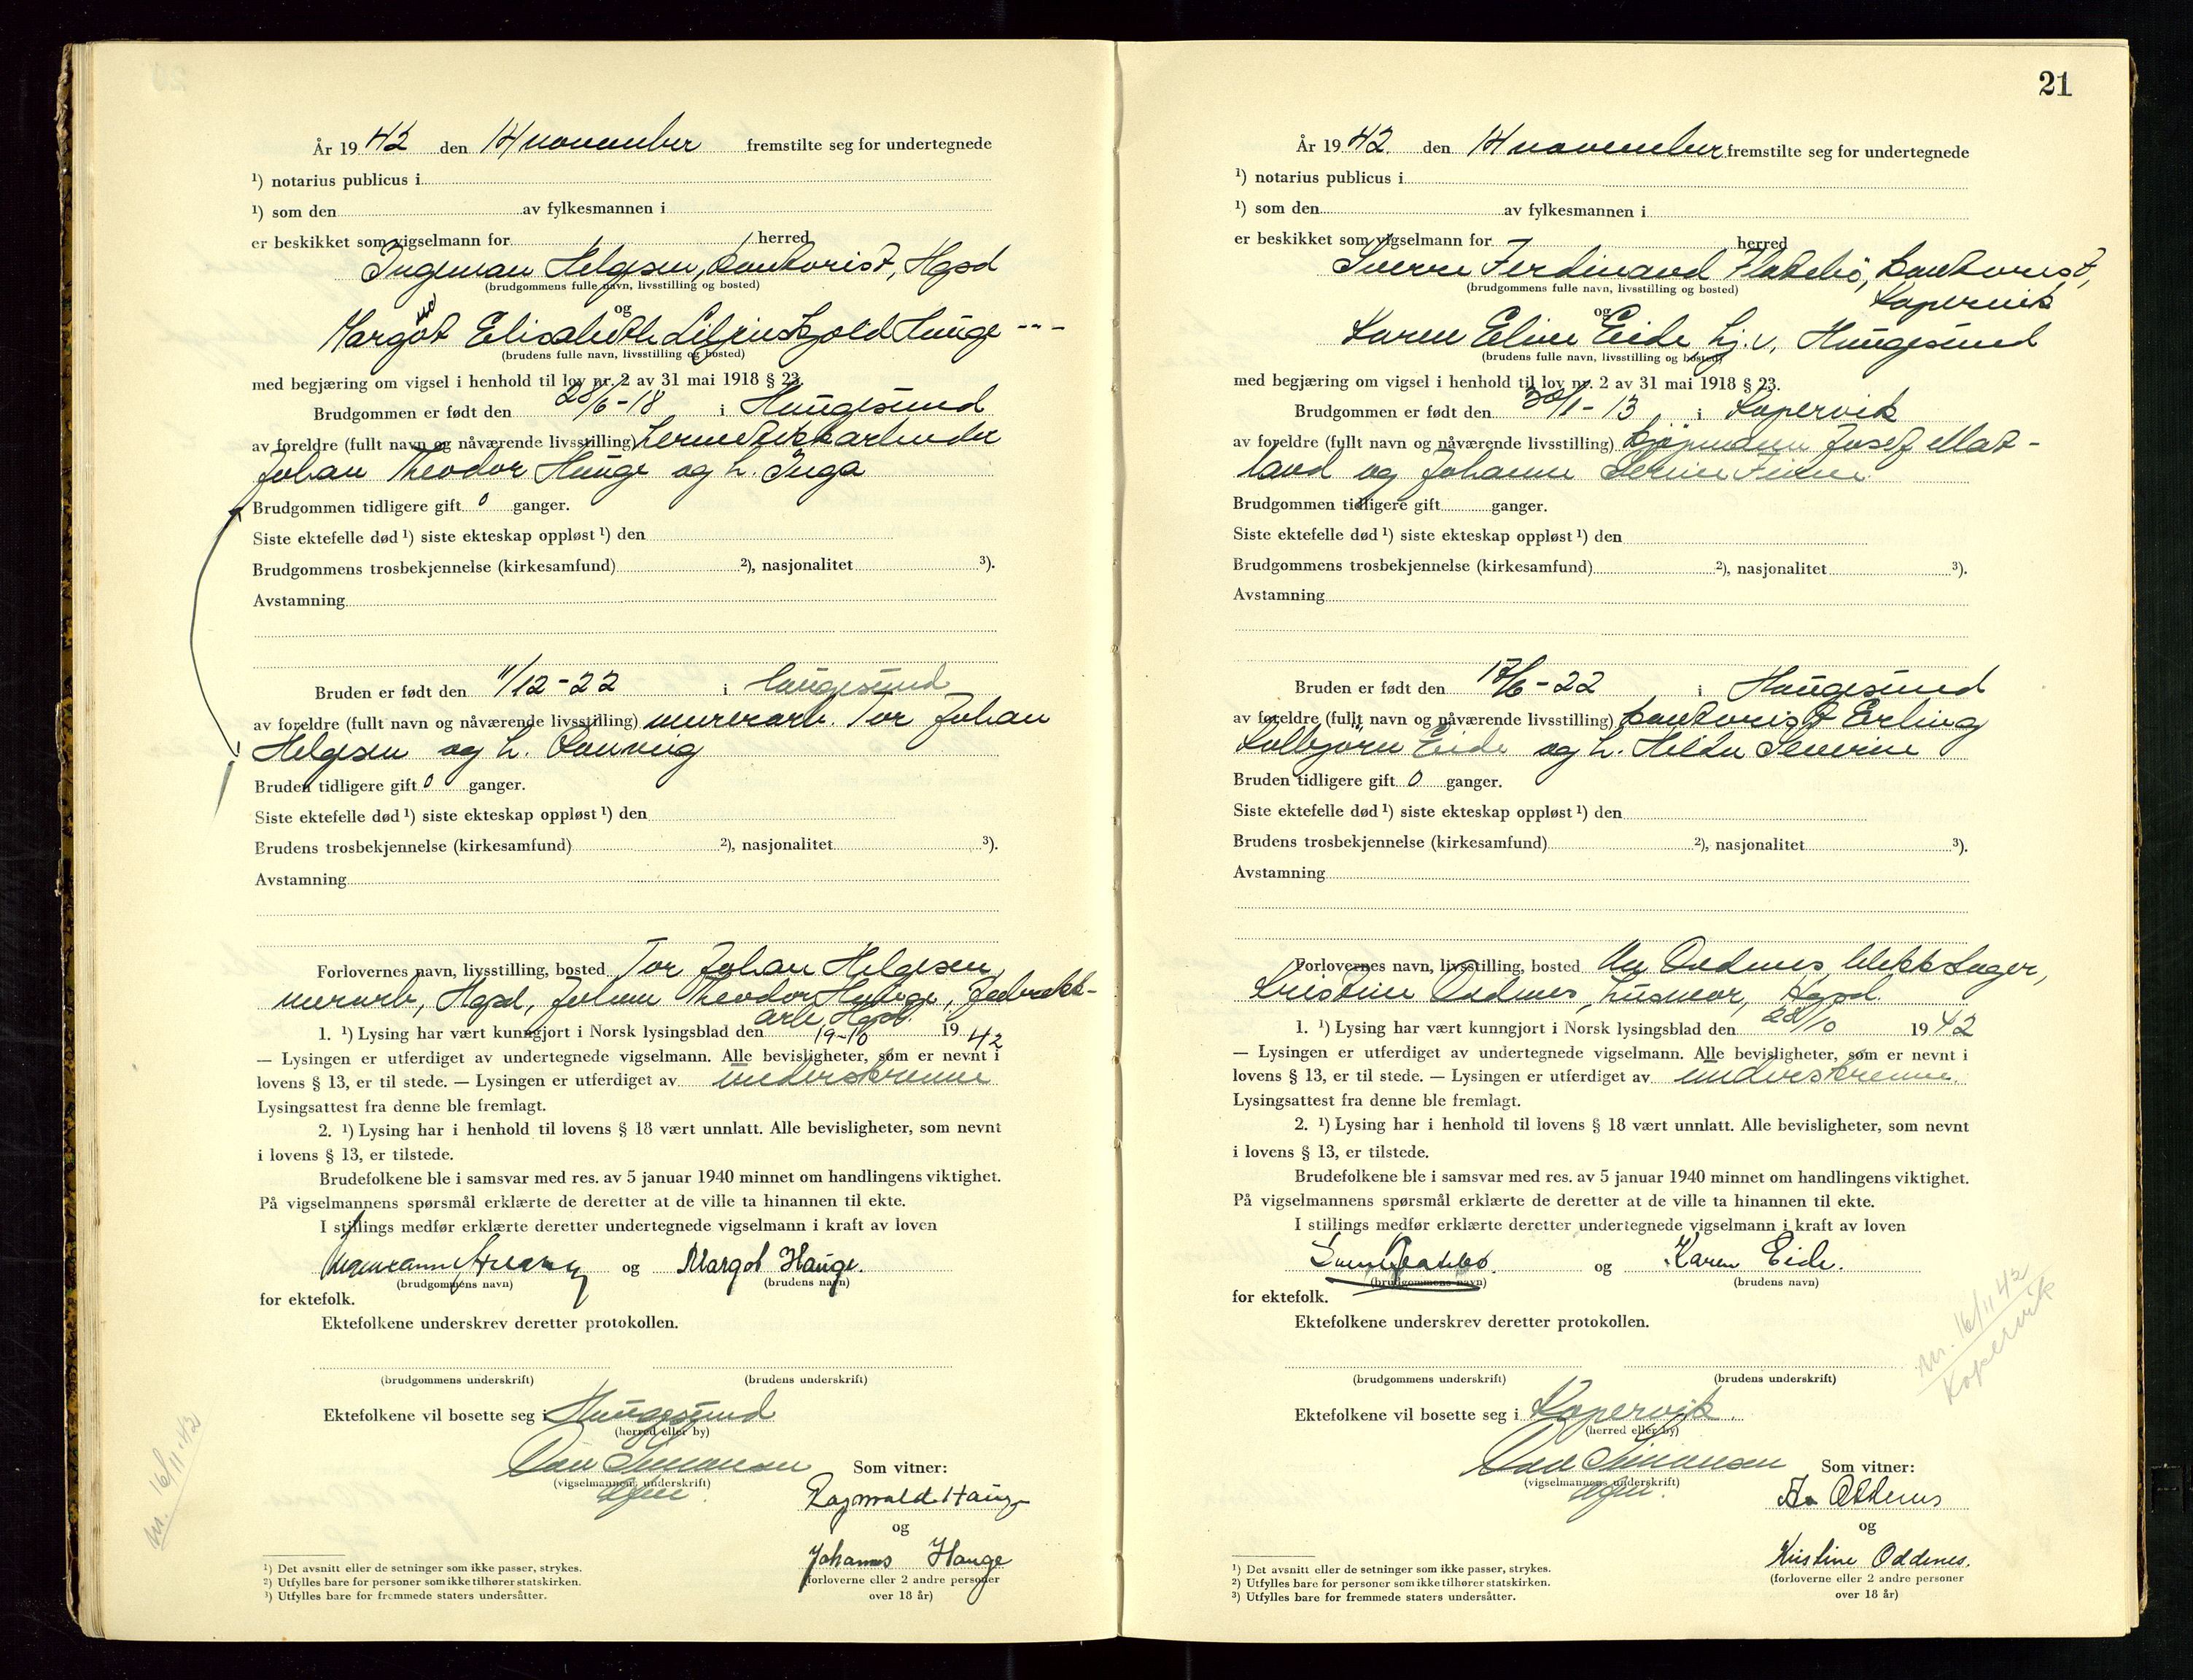 År 1942 den 14 november fremstilte seg for undertegnede
¹) notarius publicus i
¹) som den av fylkesmannen i
er beskikket som vigselmann for herred
Ingeman Helgesen, kontorist, Hgsd
(brudgommens fulle navn, livsstilling og bosted)
og
Margot Elisabeth Hauge
(brudens fulle navn, livsstilling og bosted)
med begjæring om vigsel i henhold til lov nr. 2 av 31 mai 1918 § 23.
Brudgommen er født den 28/6-18 i Haugesund
av foreldre (fullt navn og nåværende livsstilling) hermetikkarbeider
Johan Theodor Hauge og h. Inga
Brudgommen tidligere gift 0 ganger.
Siste ektefelle død ¹) siste ekteskap oppløst ¹) den
Brudgommens trosbekjennelse (kirkesamfund) ²), nasjonalitet ³).
Avstamning
Bruden er født den 11/12-22 i Haugesund
av foreldre (fullt navn og nåværende livsstilling) murerarb. Tor Johan
Helgesen og h. Rannveig
Bruden tidligere gift 0 ganger.
Siste ektefelle død ¹) siste ekteskap oppløst ¹) den
Brudens trosbekjennelse (kirkesamfund) ²), nasjonalitet ³).
Avstamning
Forlovernes navn, livsstilling, bosted Tor Johan Helgesen,
murarb, Hgsd, Johan Theodor Hauge, fabrikk-
arb Hgsd.
1. ¹) Lysing har vært kunngjort i Norsk lysingsblad den 19-10 1942
— Lysingen er utferdiget av undertegnede vigselmann. Alle bevisligheter, som er nevnt i
lovens § 13, er til stede. — Lysingen er utferdiget av underskrevne
Lysingsattest fra denne ble fremlagt.
2. ¹) Lysing har i henhold til lovens § 18 vært unnlatt. Alle bevisligheter, som nevnt
i lovens § 13, er tilstede.
Brudefolkene ble i samsvar med res. av 5 januar 1940 minnet om handlingens viktighet.
På vigselmannens spørsmål erklærte de deretter at de ville ta hinannen til ekte.
I stillings medfør erklærte deretter undertegnede vigselmann i kraft av loven
og Margot Hauge.
(brudgommens navn) (brudens navn)
for ektefolk.
Ektefolkene underskrev deretter protokollen.
(brudgommens underskrift) (brudens underskrift)
Ektefolkene vil bosette seg i Haugesund
(herred eller by)
Simonsen Som vitner:
(vigselmannens underskrift)
Ragnvald Hauge
og
Johannes Hauge
(forloverne eller 2 andre personer
over 18 år)
m. 16/11 42
¹) Det avsnitt eller de setninger som ikke passer, strykes.
²) Utfylles bare for personer som ikke tilhører statskirken.
³) Utfylles bare for fremmede staters undersåtter.
21
År 1942. den 14 november fremstilte seg for undertegnede
¹) notarius publicus i
¹) som den av fylkesmannen i
er beskikket som vigselmann for herred
Sverre Ferdinand Flatebø, kontorist,
Kopervik
(brudgommens fulle navn, livsstilling og bosted)
og
Karen Eline Eide hj.v, Haugesund
(brudens fulle navn, livsstilling og bosted)
med begjæring om vigsel i henhold til lov nr. 2 av 31 mai 1918 § 23.
Brudgommen er født den 30/1-13, i Kopervik
av foreldre (fullt navn og nåværende livsstilling) kjøpmann Josef Mat-
land og Johanne Serine
Brudgommen tidligere gift ganger.
Siste ektefelle død ¹) siste ekteskap oppløst ¹) den
Brudgommens trosbekjennelse (kirkesamfund) ²), nasjonalitet ³).
Avstamning
Bruden er født den 17/6-22 i Haugesund
av foreldre (fullt navn og nåværende livsstilling) kontorist Erling
Kolbjørn Eide og h. Hilda Severine
Bruden tidligere gift 0 ganger.
Siste ektefelle død ¹) siste ekteskap oppløst ¹) den
Brudens trosbekjennelse (kirkesamfund) ²), nasjonalitet ³).
Avstamning
Forlovernes navn, livsstilling, bosted Oddenes, blikkslager,
Kristine Oddenes, husmor, Hgsd.
1. ¹) Lysing har vært kunngjort i Norsk lysingsblad den 22/10 1942
— Lysingen er utferdiget av undertegnede vigselmann. Alle bevisligheter, som er nevnt i
lovens § 13, er til stede. — Lysingen er utferdiget av underskrevne.
Lysingsattest fra denne ble fremlagt.
2. ¹) Lysing har i henhold til lovens § 18 vært unnlatt. Alle bevisligheter, som nevnt
i lovens § 13, er tilstede.
Brudefolkene ble i samsvar med res. av 5 januar 1940 minnet om handlingens viktighet.
På vigselmannens spørsmål erklærte de deretter at de ville ta hinannen til ekte.
I stillings medfør erklærte deretter undertegnede vigselmann i kraft av loven
og Karen Eide.
(brudgommens navn) (brudens navn)
for ektefolk.
Ektefolkene underskrev deretter protokollen.
m. 16/11 42
Kopervik
(brudgommens underskrift) (brudens underskrift)
Ektefolkene vil bosette seg i Kopervik.
(herred eller by)
Simonsen Som vitner:
(vigselmannens underskrift)
Oddenes
og
Kristine Oddenes.
(forloverne eller 2 andre personer
over 18 år)
¹) Det avsnitt eller de setninger som ikke passer, strykes.
²) Utfylles bare for personer som ikke tilhører statskirken.
³) Utfylles bare for fremmede staters undersåtter.